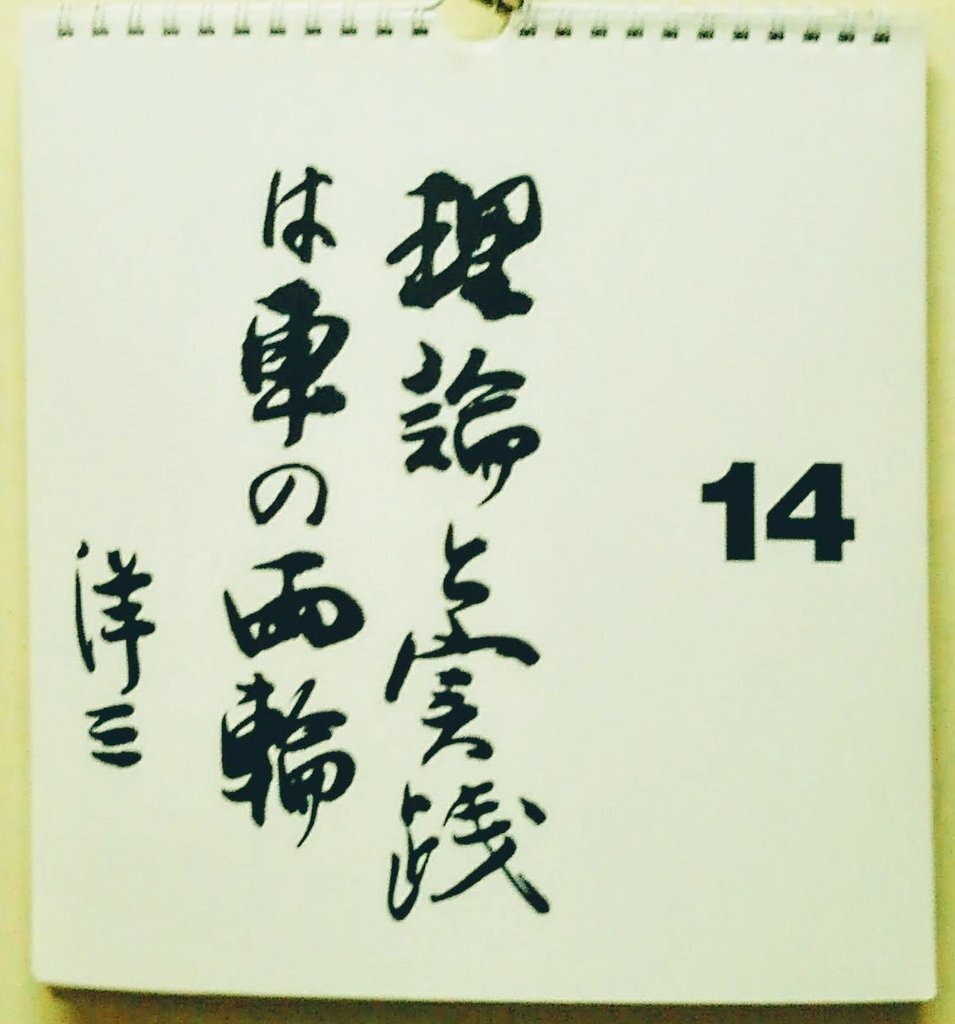 14
理論と実践
は車の両輪
洋三